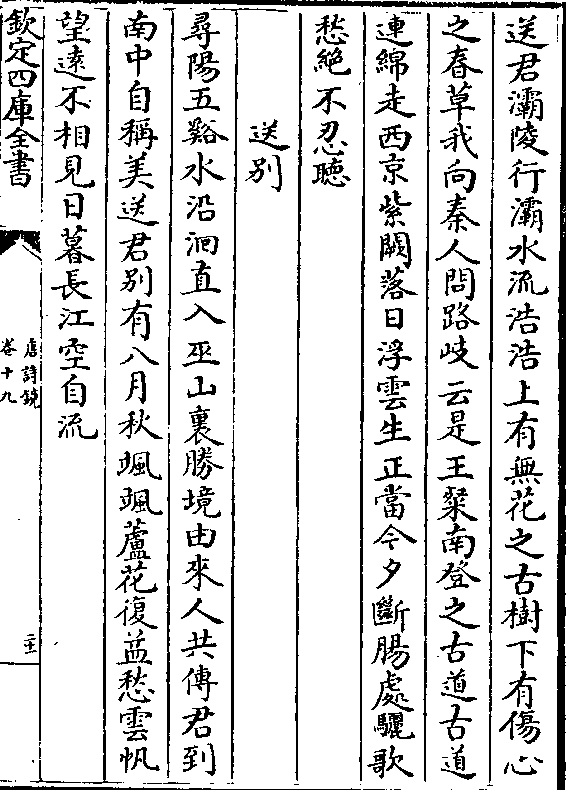 送君灞陵行灞水流浩浩上有無花之古樹下有傷心
之春草我向秦人問路岐云是王粲南登之古道古道
連綿走西京紫闕落日浮雲生正當今夕斷腸處驪歌
愁絶不忍聽
送别
尋陽五谿水沿洄直入巫山裏勝境由來人共傳君到
南中自稱美送君别有八月秋颯颯蘆花復益愁雲帆
望遠不相見日暮長江空自流
欽定四庫全書
唐詩鏡
卷十九
二十一